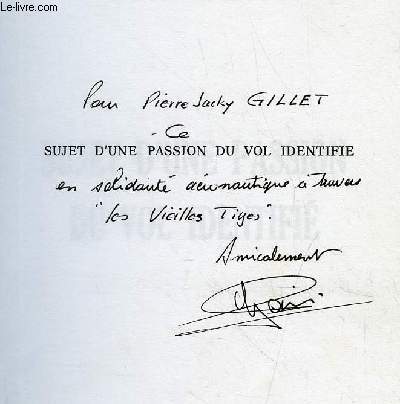 Le-livre.com
Pour Pierre Jacky GILLET
Ce
SUJET D'UNE PASSION DU VOL IDENTIFIE
en solidarité aéronautique à travers
"les Vieilles Tiges".
Amicalement